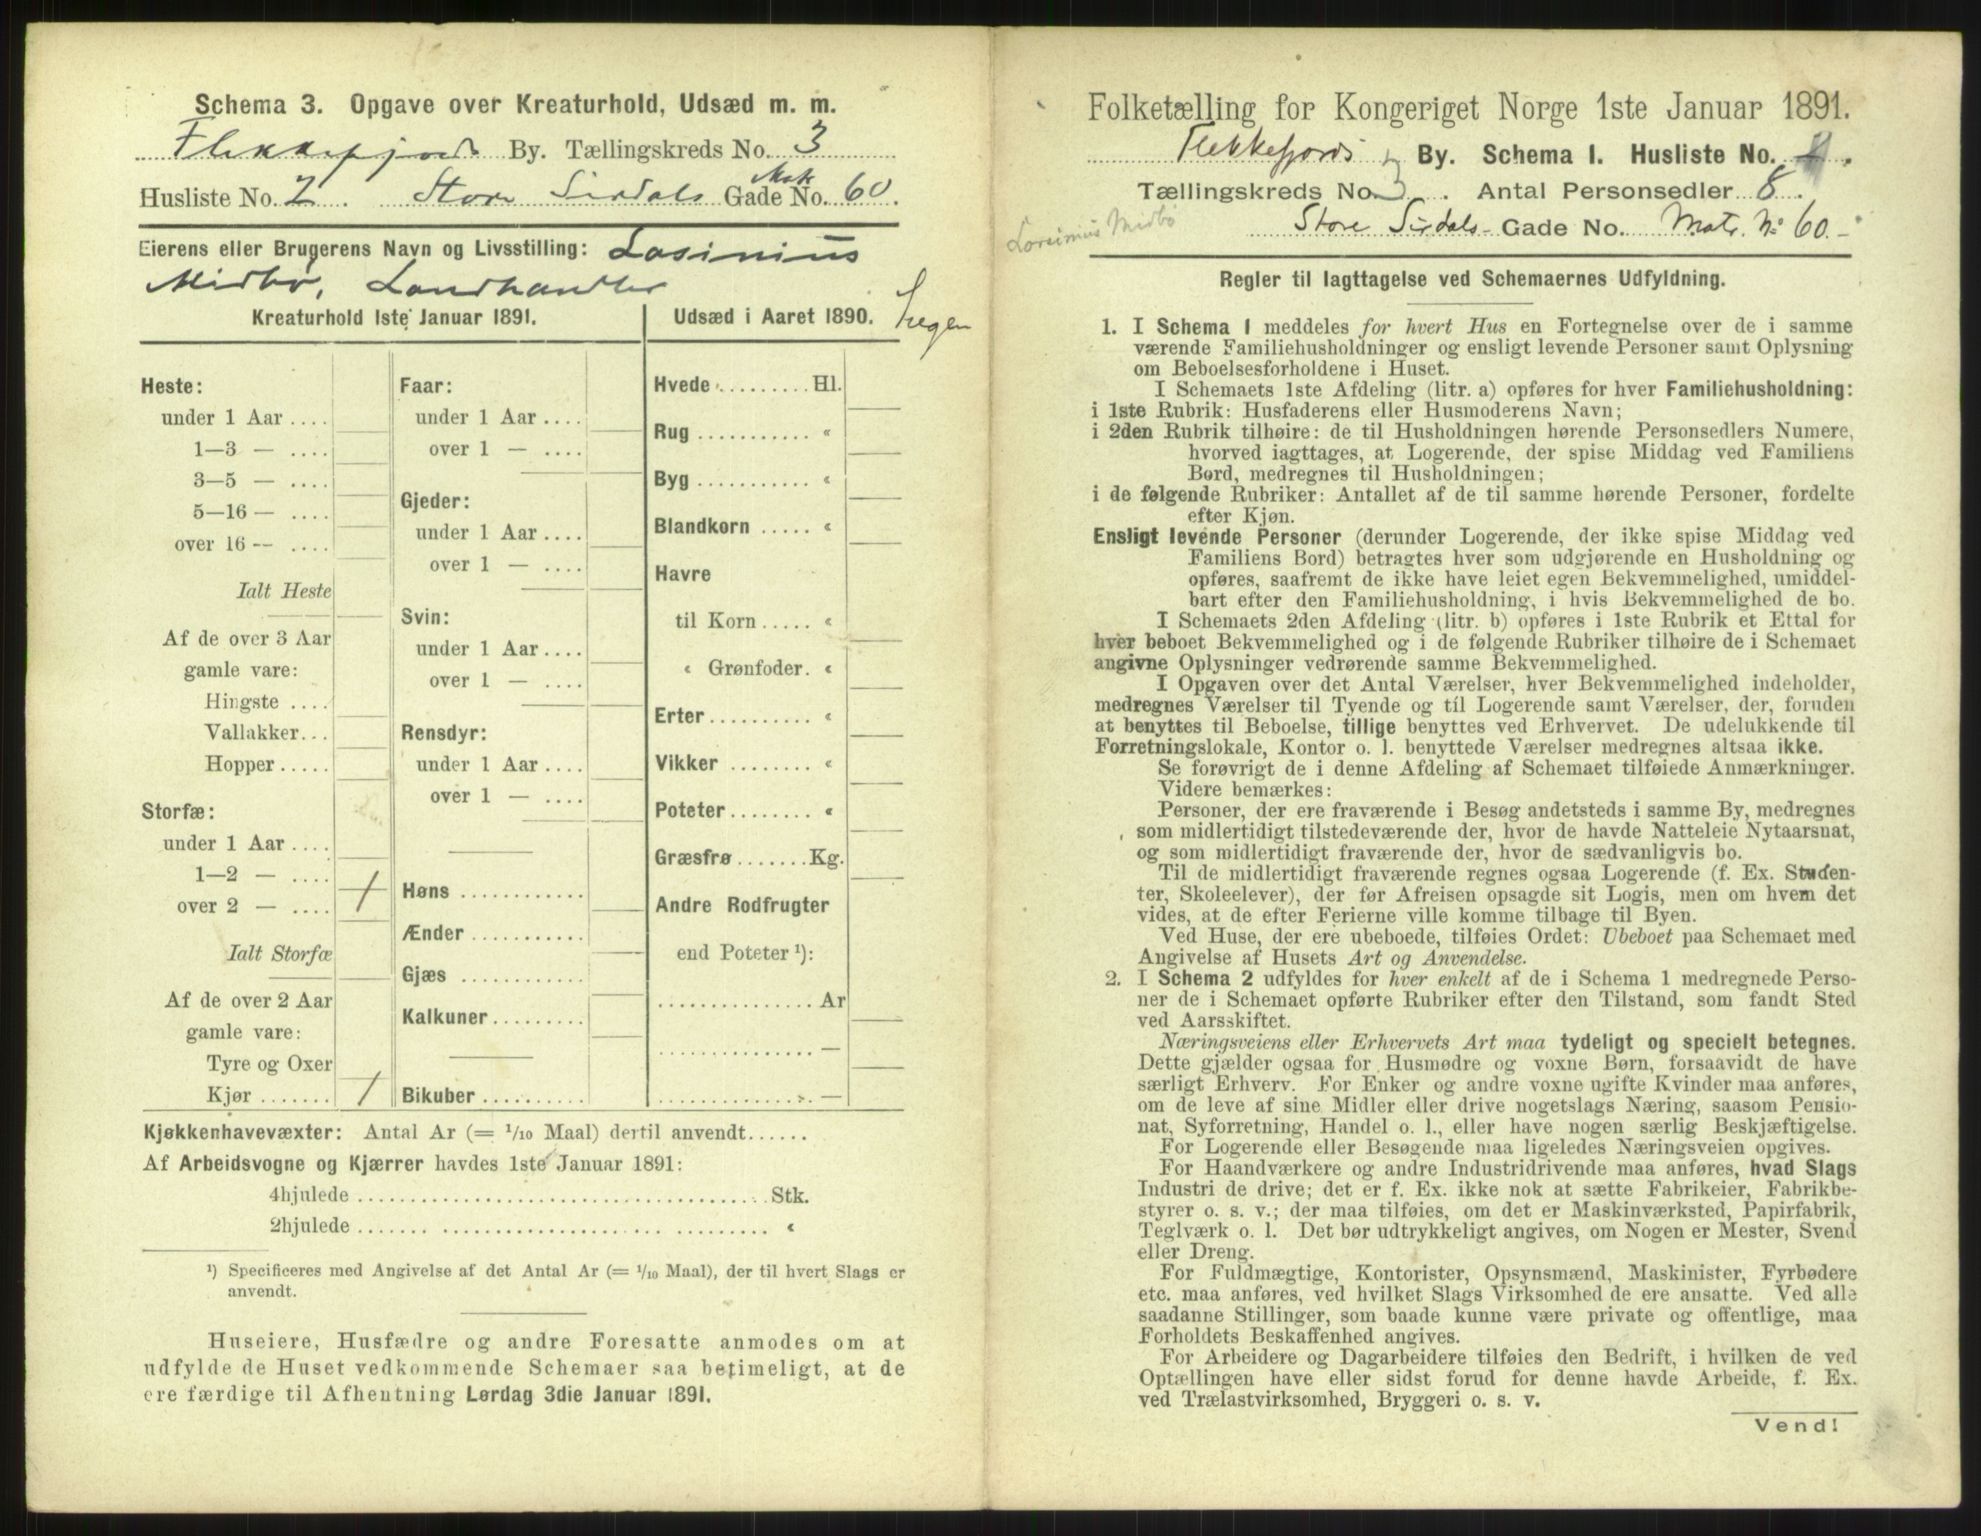 Schema 3. Opgave over Kreaturhold, Udsæd m. m.
Flekkefjords By. Tællingskreds No. 3
Husliste No. 2. Store Sirdals Gade Matr No. 60.
Eierens eller Brugerens Navn og Livsstilling: Losinius
Midbø, Landhandler
Kreaturhold 1ste Januar 1891.
Heste:
under 1 Aar ....
1—3 — ....
3—5 — ....
5—16 — ....
over 16 — ....
Ialt Heste
Af de over 3 Aar
gamle vare:
Hingste ....
Vallakker...
Hopper .....
Storfæ:
under 1 Aar ....
1—2 — ....
over 2 — .... 1
Ialt Storfæ
Af de over 2 Aar
gamle vare:
Tyre og Oxer
Kjør ....... 1
Faar:
under 1 Aar ....
over 1 — ....
Gjeder:
under 1 Aar ....
over 1 — ....
Svin:
under 1 Aar ....
over 1 — ....
Rensdyr:
under 1 Aar ....
over 1 — ....
Høns ............
Ænder ...........
Gjæs ............
Kalkuner.........
Bikuber ..........
Udsæd i Aaret 1890.
Ingen
Hvede ......... Hl.
Rug ........... «
Byg ........... «
Blandkorn ..... «
Havre
til Korn ..... «
« Grønfoder. «
Erter.......... «
Vikker ........ «
Poteter........ «
Græsfrø ....... Kg.
Andre Rodfrugter
end Poteter ¹):
............... Ar
............... —
............... —
Kjøkkenhavevæxter: Antal Ar (= 1/10 Maal) dertil anvendt......
Af Arbeidsvogne og Kjærrer havdes 1ste Januar 1891:
4hjulede ...................................... Stk.
2hjulede ...................................... «
¹) Specificeres med Angivelse af det Antal Ar (= 1/10 Maal), der til hvert Slags er
anvendt.
Huseiere, Husfædre og andre Foresatte anmodes om at
udfylde de Huset vedkommende Schemaer saa betimeligt, at de
ere færdige til Afhentning Lørdag 3die Januar 1891.
Folketælling for Kongeriget Norge 1ste Januar 1891.
Flekkefjords By. Schema I. Husliste No.
Tællingskreds No. 3. Antal Personsedler 8.
Lorsinius Midbø
Store Sirdals Gade No. Matr. No 60.
Regler til Iagttagelse ved Schemaernes Udfyldning.
1. I Schema 1 meddeles for hvert Hus en Fortegnelse over de i samme
værende Familiehusholdninger og ensligt levende Personer samt Oplysning
om Beboelsesforholdene i Huset.
I Schemaets 1ste Afdeling (litr. a) opføres for hver Familiehusholdning:
i 1ste Rubrik: Husfaderens eller Husmoderens Navn;
i 2den Rubrik tilhøire: de til Husholdningen hørende Personsedlers Numere,
hvorved iagttages, at Logerende, der spise Middag ved Familiens
Bord, medregnes til Husholdningen;
i de følgende Rubriker: Antallet af de til samme hørende Personer, fordelte
efter Kjøn.
Ensligt levende Personer (derunder Logerende, der ikke spise Middag ved
Familiens Bord) betragtes hver som udgjørende en Husholdning og
opføres, saafremt de ikke have leiet egen Bekvemmelighed, umiddel-
bart efter den Familiehusholdning, i hvis Bekvemmelighed de bo.
I Schemaets 2den Afdeling (litr. b) opføres i 1ste Rubrik et Ettal for
hver beboet Bekvemmelighed og i de følgende Rubriker tilhøire de i Schemaet
angivne Oplysninger vedrørende samme Bekvemmelighed.
I Opgaven over det Antal Værelser, hver Bekvemmelighed indeholder,
medregnes Værelser til Tyende og til Logerende samt Værelser, der, foruden
at benyttes til Beboelse, tillige benyttes ved Erhvervet. De udelukkende til
Forretningslokale, Kontor o. l. benyttede Værelser medregnes altsaa ikke.
Se forøvrigt de i denne Afdeling af Schemaet tilføiede Anmærkninger.
Videre bemærkes:
Personer, der ere fraværende i Besøg andetsteds i samme By, medregnes
som midlertidigt tilstedeværende der, hvor de havde Natteleie Nytaarsnat,
og som midlertidigt fraværende der, hvor de sædvanligvis bo.
Til de midlertidigt fraværende regnes ogsaa Logerende (f. Ex. Studen-
ter, Skoleelever), der før Afreisen opsagde sit Logis, men om hvem det
vides, at de efter Ferierne ville komme tilbage til Byen.
Ved Huse, der ere ubeboede, tilføies Ordet: Ubeboet paa Schemaet med
Angivelse af Husets Art og Anvendelse.
2. I Schema 2 udfyldes for hver enkelt af de i Schema 1 medregnede Perso-
ner de i Schemaet opførte Rubriker efter den Tilstand, som fandt Sted
ved Aarsskiftet.
Næringsveiens eller Erhvervets Art maa tydeligt og specielt betegnes.
Dette gjælder ogsaa for Husmødre og voxne Børn, forsaavidt de have
særligt Erhverv. For Enker og andre voxne ugifte Kvinder maa anføres,
om de leve af sine Midler eller drive nogetslags Næring, saasom Pensio-
nat, Syforretning, Handel o. l., eller have nogen særlig Beskjæftigelse.
For Logerende eller Besøgende maa ligeledes Næringsveien opgives.
For Haandværkere og andre Industridrivende maa anføres, hvad Slags
Industri de drive; det er f. Ex. ikke nok at sætte Fabrikeier, Fabrikbe-
styrer o. s. v.; der maa tilføies, om det er Maskinværksted, Papirfabrik,
Teglværk o. l. Det bør udtrykkeligt angives, om Nogen er Mester, Svend
eller Dreng.
For Fuldmægtige, Kontorister, Opsynsmænd, Maskinister, Fyrbødere
etc. maa anføres, ved hvilket Slags Virksomhed de ere ansatte. Ved alle
saadanne Stillinger, som baade kunne være private og offentlige, maa
Forholdets Beskaffenhed angives.
For Arbeidere og Dagarbeidere tilføies den Bedrift, i hvilken de ved
Optællingen have eller sidst forud for denne havde Arbeide, f. Ex.
ved Trælastvirksomhed, Bryggeri o. s. v.
Vend!